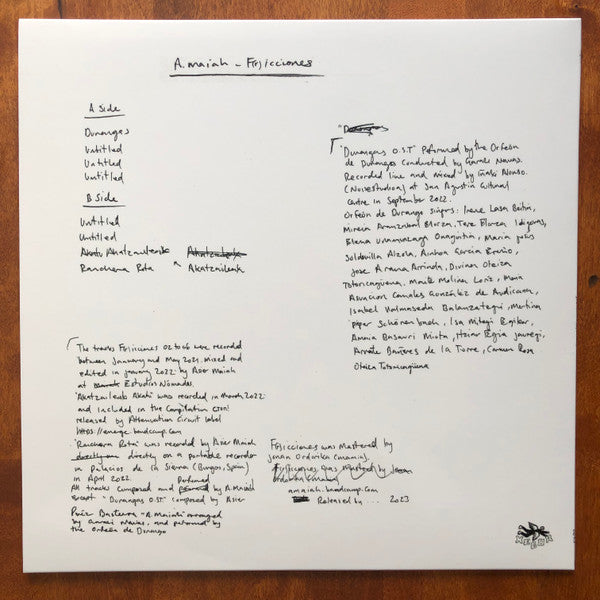 A. Maiah - F(r)icciones
A Side
Durangas
Untitled
Untitled
Untitled
B Side
Untitled
Untitled
Akatzailenk
Ranchera Rota
Akatzailenk
"Durangas O.S.T" Peformed by the Orfeón
de Durango conducted by Navas.
Recorded live and mixed by Iñaki Alonso.
(Noisestudioa) at San Agustin Cultural
Centre in September 2022.
Orfeón de Durango singers: Irene Lasa Beitia,
Mireia Elorza, Tere Elorza Idigoras,
Elena Onaguitia, María Jesús
Soldevilla Alzola, Ainhoa García
Jose Arana Arrinda, Divina Oteiza
Totoricagüena, Maite Molina Loriz, María
Asuncion Canales González de Audicana,
Isabel Valmaseda Balanzategui, Martina
piper Schönenbach, Isa Mitegi Egibar,
Amaia Basauri Miota, Itziar Egia Jauregi,
Arrate Bañeres de la Torre, Carmen Rosa
Oteiza Totoricagüena
The tracks F(r)icciones 02 to 06 were recorded
between January and May 2021. mixed and
edited in January 2022 by Asier Maiah
at Estudios Nómadas.
was recorded in March 2022
and included in the Compilation
released by Attenuation Circuit label
'Ranchera Rota' was recorded by Asier Maiah
directly on a portable recorder
in Palacios de la Sierra (Burgos, Spain)
in April 2022.
All tracks composed and Performed by A. Maiah
Except "Durangas O.S.T" composed by Asier
Ruiz Basterra "A Maiah" arranged
by and performed by
the Orfeón de Durango
F(r)icciones was Mastered by
Jonan Ordorika (Mamia).
F(r)icciones was mastered by Jonan
Ordorika (Mamia)
amaiah.bandcamp.com
Released by .... 2023